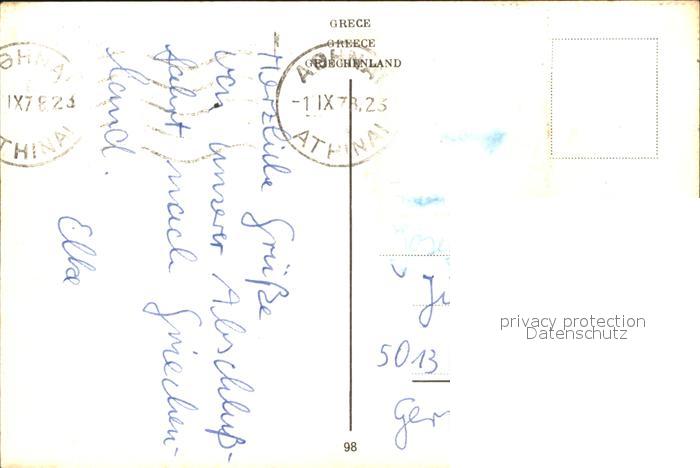 GRECE
GREECE
GRIECHENLAND
ΑΘΗΝΑΙ
-1 IX 78, 23
ATHINAI
ΑΘΗΝΑΙ
IX 78 23
ATHINAI
Herzliche Grüße
von unserer Abschluß-
fahrt nach Griechen-
land.
Elke
5013
Ger
98
privacy protection
Datenschutz